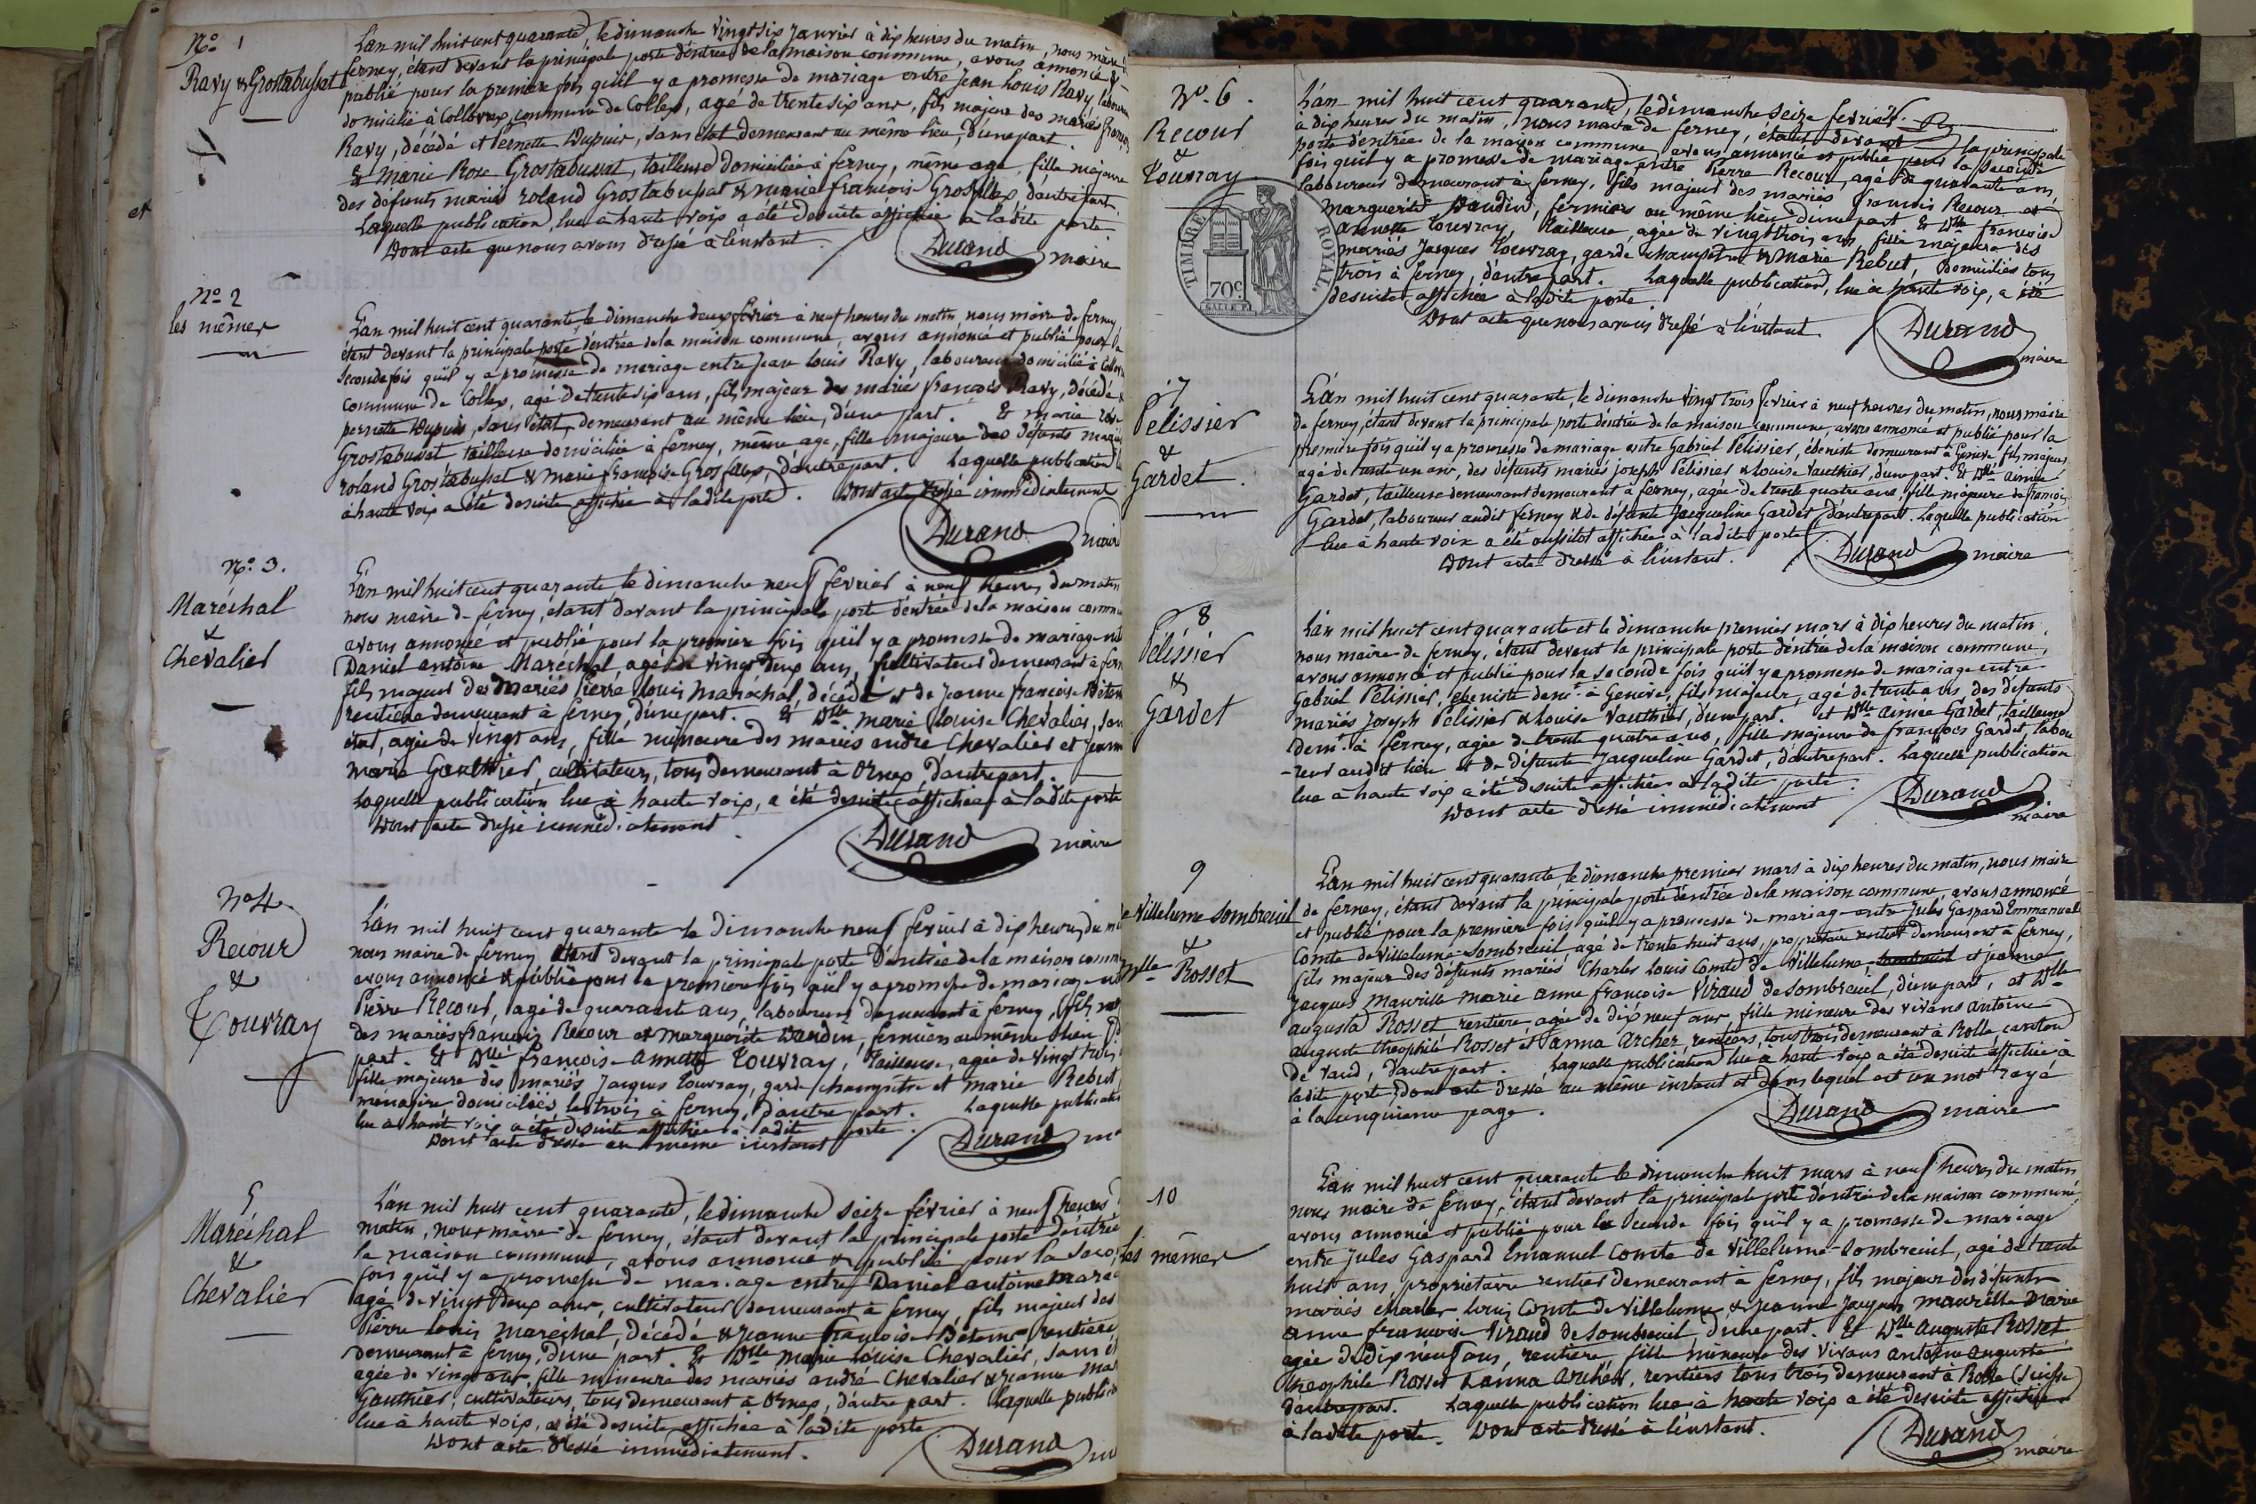 N.o 1
Ravy & Grostabussat
L'an mil huit cent quarante, le dimanche vingt six Janvier à dix heures du matin, nous maire de
ferney, étant devant la principale porte d'entrée de la maison commune, avons annoncé &
publié pour la première fois qu'il y a promesse de mariage entre Jean Louis Ravy, laboureur
domicilié à Collex, commune de Collex, agé de trente six ans, fils majeur des mariés françois
Ravy, décédé et Pernette Dupuis, sans état demeurant au même lieu, d'une part.
& Marie Rose Grostabussat, tailleuse domiciliée à ferney, même age, fille majeure
des defunts mariés roland Grostabussat & marie françoise Grosfilex, d'autre part.
Laquelle publication, lue à haute voix a été desuite affichée à ladite porte
Dont acte que nous avons dressé à l'instant.
Durand maire
N.o 2
les mêmes
L'an mil huit cent quarante, le dimanche deux février à neuf heures du matin nous maire de ferney
étant devant la principale porte d'entrée de la maison commune, avons annoncé et publié pour la
seconde fois qu'il y a promesse de mariage entre Jean Louis Ravy, laboureur domicilié à
commune de Collex, agé de trente six ans, fils majeur des mariés françois Ravy, décédé &
pernette Dupuis, sans état, demeurant au même lieu, d'une part. & marie rose
Grostabussat tailleuse domiciliée à ferney, même age, fille majeure des défunts mariés
roland Grostabussat & marie françoise Grosfilex, d'autre part. Laquelle publication
à haute voix a été desuite affichée à ladite porte. Dont acte dressé immédiatement
Durand maire
N.o 3.
Maréchal
&
Chevalier
L'an mil huit cent quarante, le dimanche neuf février à neuf heures du matin
nous maire de ferney, étant devant la principale porte d'entrée de la maison commune
avons annoncé et publié pour la première fois qu'il y a promesse de mariage
Daniel antoine Maréchal agé de vingt deux ans, cultivateur demeurant à ferney
fils majeur des mariés Pierre Louis Maréchal, décédé et de Jeanne françoise Béteme
rentière demeurant à ferney, d'une part. Et Dlle marie Louise Chevalier, sans
état, agée de vingt ans, fille mineure des mariés andré Chevalier et Jeanne
marie Gauthier, cultivateurs, tous demeurant à Ornex, d'autre part.
Laquelle publication lue à haute voix, a été desuite affichée à ladite porte
Dont acte dressé immédiatement.
Durand maire
N.o 4
Recour
&
Touvray
L'an mil huit cent quarante le dimanche neuf février à dix heures du
nous maire de ferney étant devant la principale porte d'entrée de la maison commune
avons annoncé & publié pour la première fois qu'il y a promesse de mariage
Pierre Recour, agé de quarante ans, laboureur demeurant à ferney, fils
des mariés françois Recour et Marguerite Vaudin, fermiers au même lieu
part. & Dlle françoise Annette Touvray, Tailleuse, agée de vingt trois
fille majeure des mariés Jacques Touvray, garde champêtre et Marie Rebut,
ménagère domiciliés les trois à ferney, d'autre part. Laquelle publication
lue à haute voix a été desuite affichée à ladite porte.
Dont acte dressé au même instant
Durand
5
Maréchal
&
Chevalier
L'an mil huit cent quarante, le dimanche seize février à neuf heures
matin, nous maire de ferney, étant devant la principale porte d'entrée
la maison commune, avons annoncé & publié pour la
fois qu'il y a promesse de mariage entre Daniel antoine
agé de vingt deux ans, cultivateur demeurant à ferney, fils majeur des
Pierre Louis Maréchal, décédé & Jeanne françoise Béteme rentière
demeurant à ferney, d'une part. Et Dlle Marie Louise Chevalier, sans
agée de vingt ans, fille mineure des mariés andré Chevalier & Jeanne
Gauthier, cultivateurs, tous demeurant à Ornex, d'autre part. Laquelle
lue à haute voix, a été desuite affichée à ladite porte
Dont acte dressé immédiatement.
Durand
N.o 6.
Recour
&
Touvray
TIMBRE ROYAL.
70c
L'an mil huit cent quarante, le dimanche seize février
à dix heures du matin, nous maire de ferney, étant devant la principale
porte d'entrée de la maison commune avons annoncé et publié pour la seconde
fois qu'il y a promesse de mariage entre Pierre Recour, agé de quarante ans,
laboureur demeurant à ferney, fils majeur des mariés françois Recour et
Marguerite Vaudin, fermiers au même lieu d'une part & Dlle françoise
annette Touvray, tailleuse, agée de vingt trois ans fille majeure des
mariés Jacques Touvray, garde champêtre & Marie Rebut, Domiciliés tous
trois à ferney, d'autre part. Laquelle publication, lue à haute voix, a été
desuite affichée à ladite porte.
Dont acte que nous avons dressé à l'instant.
Durand
maire
7
Pelissier
&
Gardet.
L'an mil huit cent quarante, le dimanche vingt trois février à neuf heures du matin, nous maire
de ferney, étant devant la principale porte d'entrée de la maison commune, avons annoncé et publié pour la
première fois qu'il y a promesse de mariage entre Gabriel Pelissier, ébéniste demeurant à Genève fils majeur
agé de trente un ans, des défunts mariés joseph Pelissier & Louise Vauthier, d'une part. Et Dlle aimée
Gardet, tailleuse demeurant demeurant à ferney, agée de trente quatre ans, fille majeure de françois
Gardet, laboureur audit ferney & de défunte Jacqueline Gardet d'autre part. Laquelle publication
lue à haute voix a été aussitôt affichée à ladite porte
Dont acte dressé à l'instant.
Durand maire
8
Pélissier
&
Gardet
L'an mil huit cent quarante et le dimanche premier mars à dix heures du matin,
nous maire de ferney, étant devant la principale porte d'entrée de la maison commune,
avons annoncé et publié pour la seconde fois qu'il y a promesse de mariage entre
Gabriel Pelissier, ébéniste demt. à Genève, fils majeur, agé de trente ans, des défunts
mariés Joseph Pelissier & Louise Vauthier, d'une part. et Dlle aimée Gardet, tailleuse
demt. à ferney, agée de trente quatre ans, fille majeure de françois Gardet, labou
-reur audit lieu et de défunte Jacqueline Gardet, d'autre part. Laquelle publication
lue à haute voix a été desuite affichée à ladite porte.
Dont acte dressé immédiatement
Durand
maire
9
de Villelume Sombreuil
&
Dlle Rosset
L'an mil huit cent quarante, le dimanche premier mars à dix heures du matin, nous maire
de ferney, étant devant la principale porte d'entrée de la maison commune, avons annoncé
et publié pour la première fois qu'il y a promesse de mariage entre Jules Gaspard Emmanuel
Comte de Villelume-Sombreuil agé de trente huit ans, propriétaire rentier demeurant à ferney,
fils majeur des défunts mariés Charles Louis Comte de Villelume Sombreuil et jeanne
Jacques Maurille marie anne françoise Viraud de Sombreuil, d'une part, et Dlle
augusta Rosset rentière, agée de dix neuf ans fille mineure des vivans Antoine
auguste théophile Rosset et anna Archer, rentiers, tous trois demeurant à Rolle canton
de Vaud, d'autre part. Laquelle publication lue à haute voix a été desuite affichée à
ladite porte, Dont acte dressé au même instant et dans lequel est un mot rayé
à la cinquième page.
Durand maire
10
les mêmes
L'an mil huit cent quarante le dimanche huit mars à neuf heures du matin
nous maire de ferney, étant devant la principale porte d'entrée de la maison commune,
avons annoncé et publié pour la seconde fois qu'il y a promesse de mariage
entre Jules Gaspard Emanuel Comte de Villelume-Sombreuil, agé de trente
huit ans, propriétaire rentier demeurant à ferney, fils majeur des défunts
mariés charles Louis Comte de Villelume & Jeanne Jacques Maurille Marie
anne françoise Viraud de Sombreuil, d'une part. Et Dlle Augusta Rosset
agée de dix neuf ans, rentière, fille mineure des vivans antoine auguste
théophile Rosset & anna Archer, rentiers tous trois demeurant à Rolle (Suisse)
d'autre part. Laquelle publication lue à haute voix a été desuite affichée
à ladite porte. Dont acte dressé à l'instant.
Durand
maire